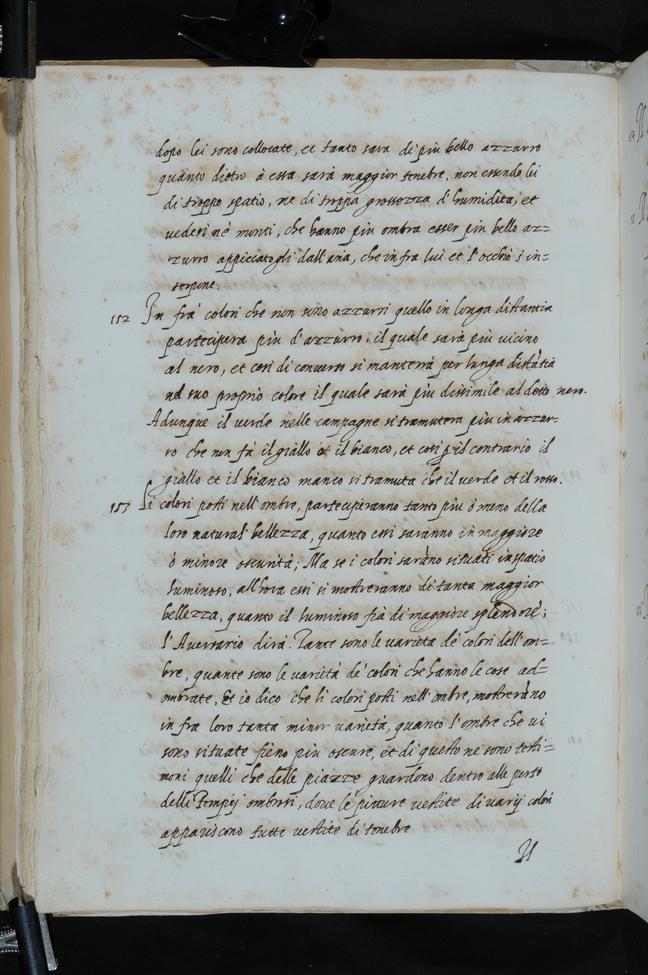 dopo lei sono collocate, et tanto sara di più bello azzurro
quanto dietro à essa sarà maggior tenebre, non essendo lui
di troppo spatio, ne di troppa grossezza d'humidita, et
vedesi ne monti, che hanno più ombra esser più bello az=
zurro appiccatogli dall'aria, che infra lui et l'occhio s'in=
terpone.
152 In frà colori che non sono azzurri quello in longa distantia
parteciperà più d'azzurro, il quale sarà più vicino
al nero, et cosi di converso si manterrà per lunga distãtia
nel suo proprio colore il quale sarà più dissimile al detto nero.
Adunque il verde nelle campagne si tramutera più in azzur-
ro che non fà il giallo ò il bianco, et cosi p il contrario il
giallo et il bianco manco si tramuta che il verde et il rosso.
153 Li colori posti nell'ombre, parteciperanno tanto più ò meno della
loro natural bellezza, quanto essi saranno in maggiore
ò minore oscurità; Ma se i colori sarãno situati in spatio
luminoso, all'hora essi si mostreranno di tanta maggior
bellezza, quanto il luminoso fia di maggiore splendore;
l'Aversario dirà. Tante sono le varietà de colori dell'om=
bre, quante sono le varietà de' colori che hanno le cose ad=
ombrate, Et io dico che li colori posti nell'ombre, mostrerãno
in fra loro tanta minor varietà, quanto l'ombre che vi
sono situate fieno più oscure, et di questo ne sono testi=
moni quelli che delle piazze guardono dentro alle porte
delli Tempij ombrosi, dove le pitture vestite di varij colori
appariscono tutte vestite di tenebre
Il